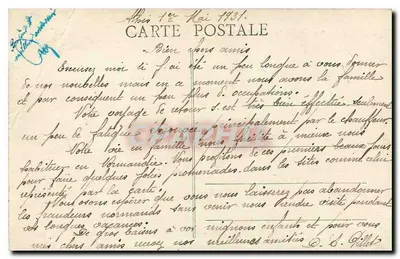 Athis 1er Mai 1931.
CARTE POSTALE
Bien chers amis
Excusez moi si j'ai été un peu longue à vous donner
de nos nouvelles mais en ce moment nous avons la famille
et par conséquent un peu plus de occupations.
Votre voyage de retour s'est très bien effectué seulement
un peu de fatigue principalement par le chauffeur.
Votre vie en famille nous à mieux nous
habituer en Normandie. Nous profitons de ces premiers beaux jours
pour faire quelques jolies promenades dans les sites comme celui
représenté par la carte.
Nous osons espérer que vous nous laisserez pas abandonner
les grandeurs normands sans venir nous rendre visite pendant
vos longues vacances.
De gros baisers à vos mignons enfants et pour vous
mes chers amis recevez nos meilleures amitiés